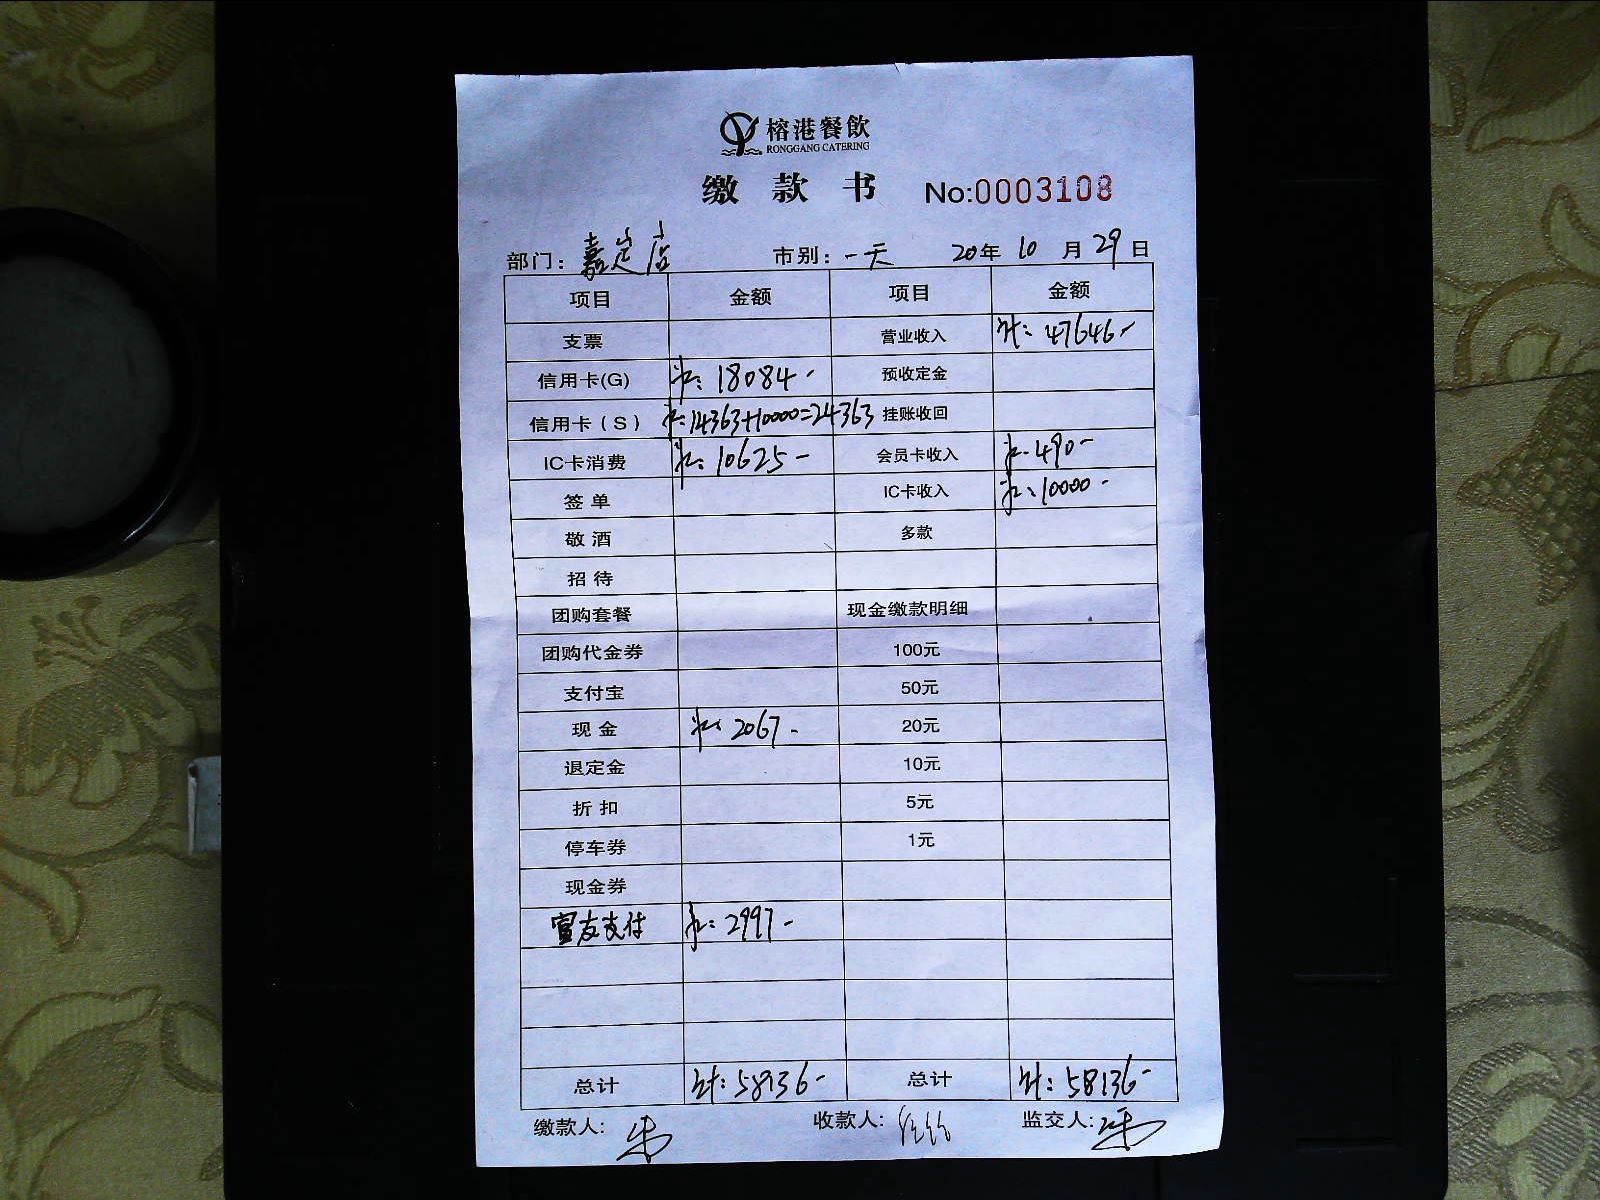 榕港餐飲
RONGGANG CATERING
缴款书 No:0003108
部门：嘉定店 市别：一天 20年10月29日
项目 金额 项目 金额
支票 营业收入 计：47646-
信用卡(G) 18084- 预收定金
信用卡（S） 14363+10000=24363 挂账收回
IC卡消费 10625- 会员卡收入 490-
签单 IC卡收入 10000-
敬酒 多款
招待
团购套餐 现金缴款明细
团购代金券 100元
支付宝 50元
现金 2067- 20元
退定金 10元
折扣 5元
停车券 1元
现金券
友支付 2997-
总计 计：58136- 总计 计：58136-
缴款人： 收款人： 监交人：